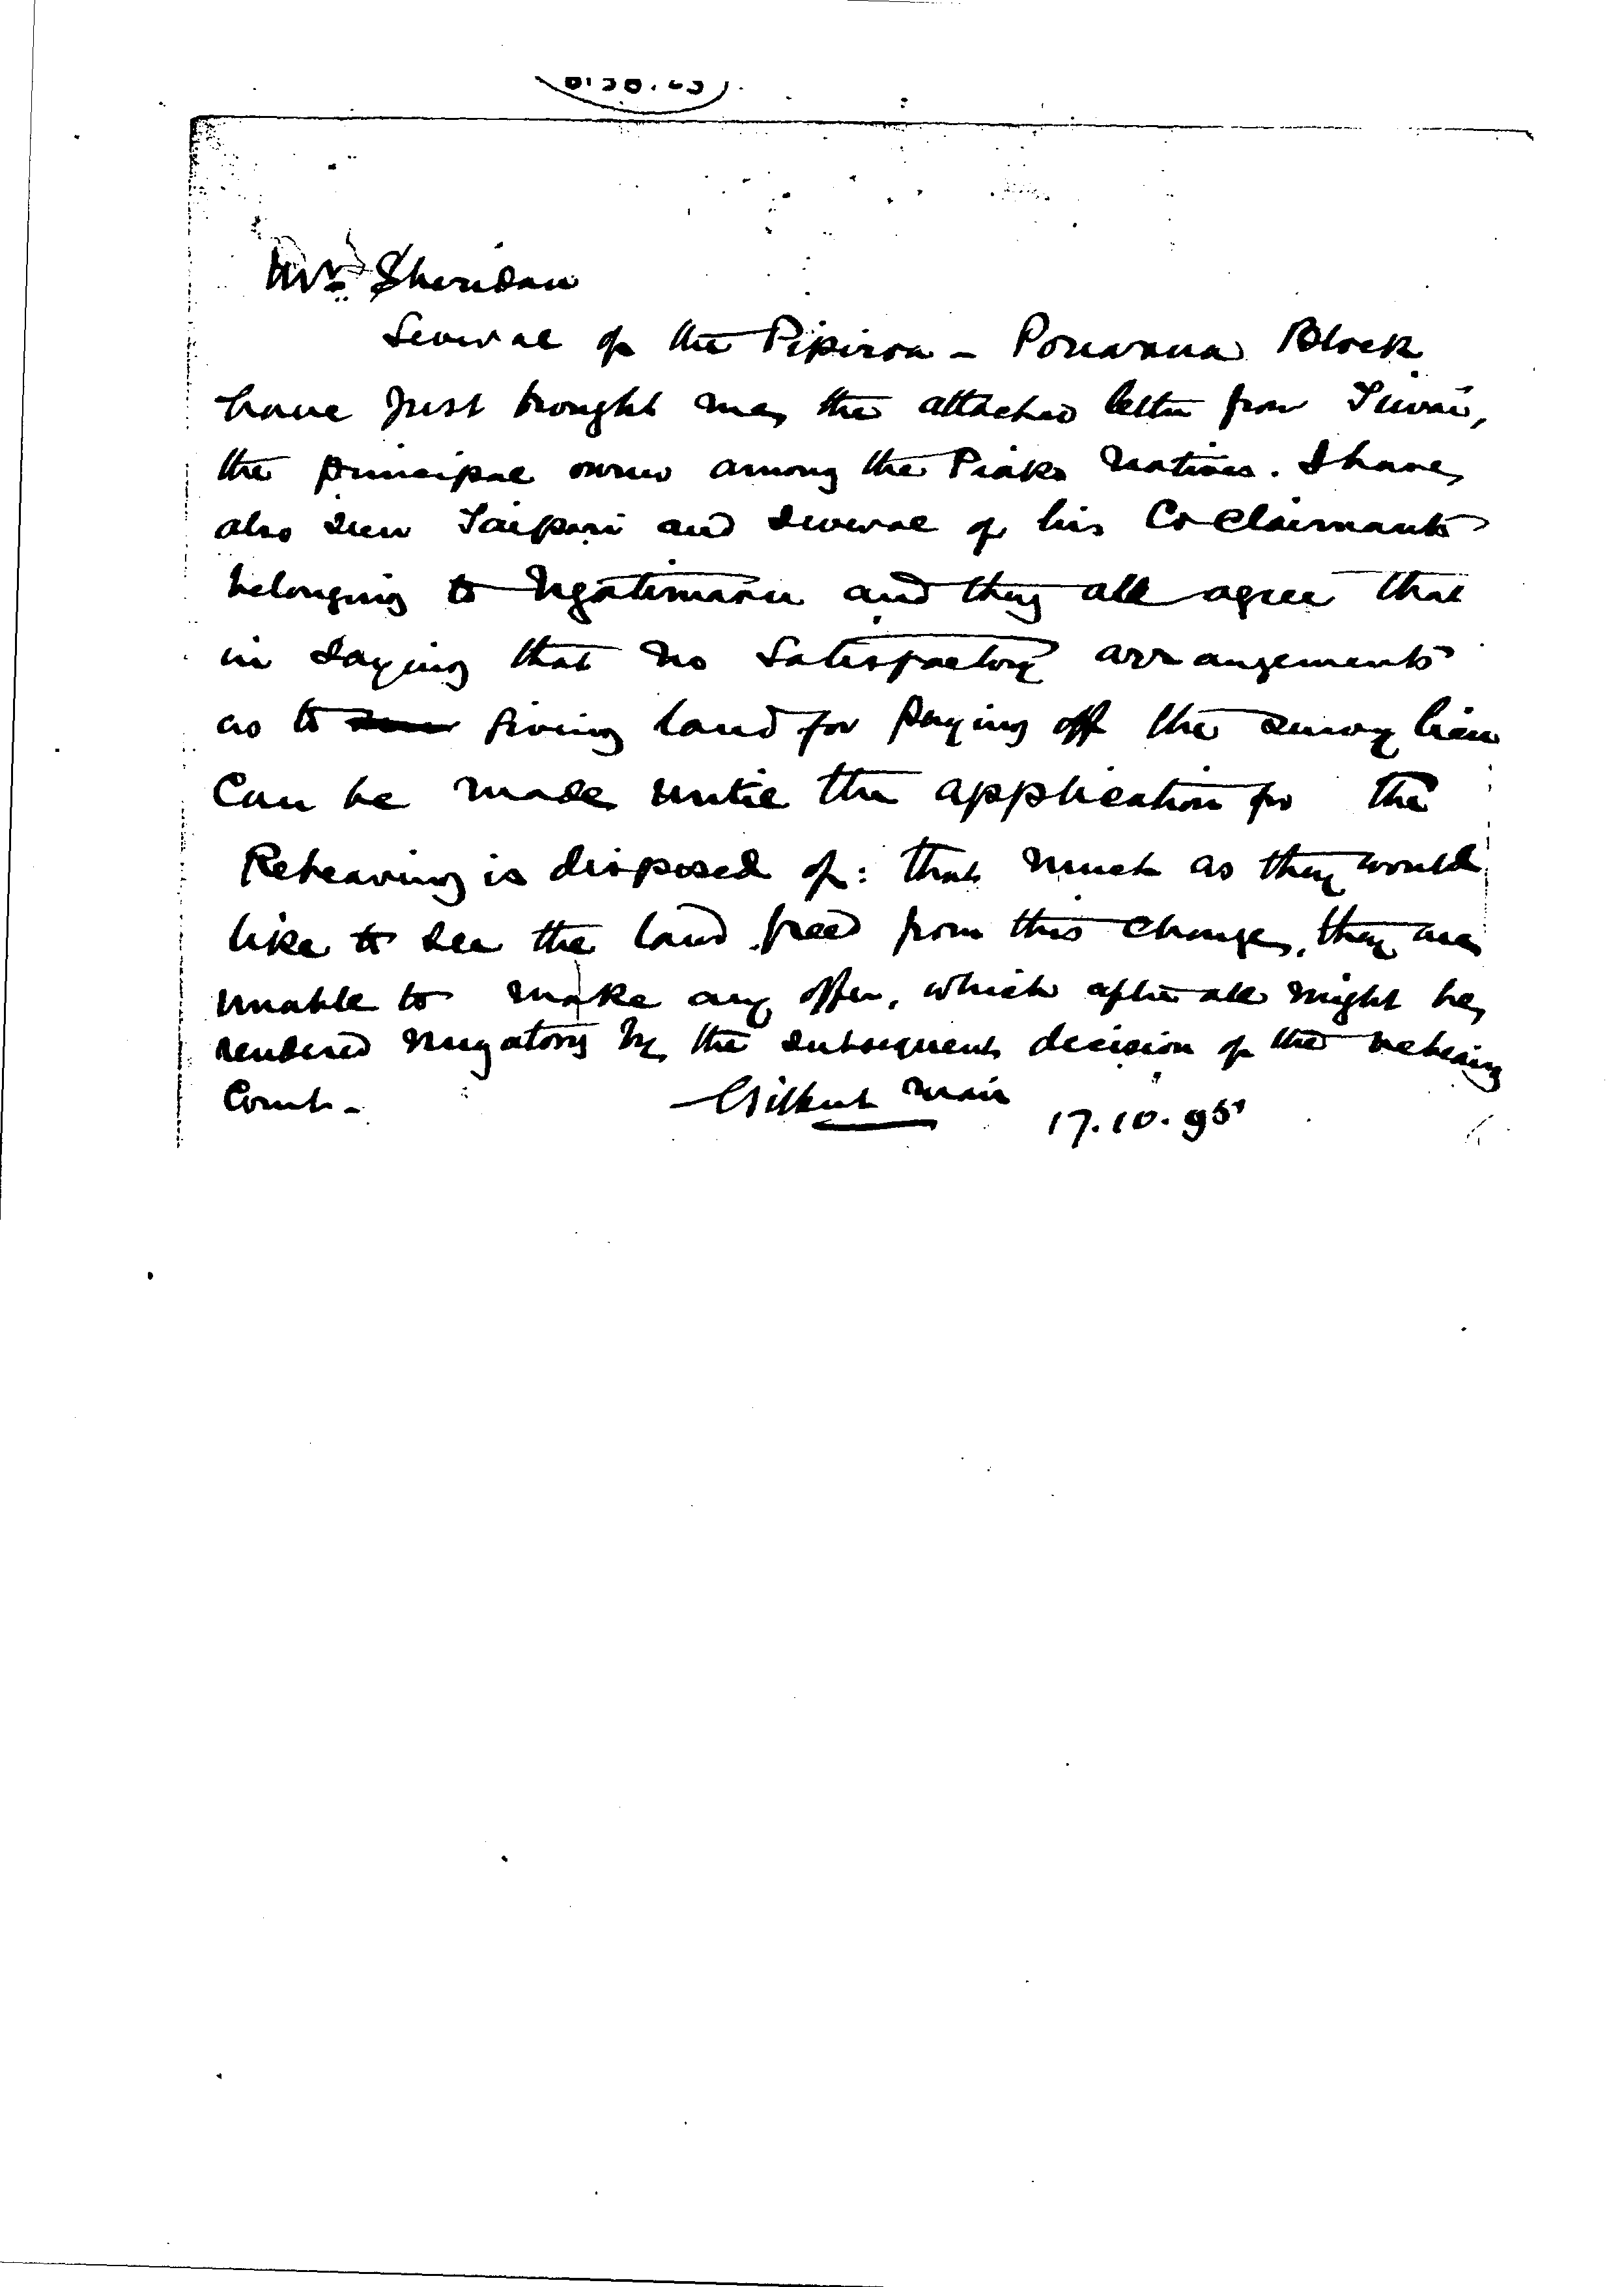 Mr. Sheridan
Several of the Pipiroa - Pouarua Block
have just brought me, the attached letter from Tiwai,
the principal owner among the Piako Natives. I have
also seen Taipari and several of his Co Claimants
belonging to Ngatimaru and they all agree that
in saying that no satisfactory arrangements
as to giving land for paying off the survey lien
Can be made until the application for the
Rehearing is disposed of: that much as they would
like to see the land freed from this charge, they are
unable to make any offer, which after all might be
rendered nugatory by the subsequent decision of the rehearing
Court -
Gilbert Mair 17.10.95